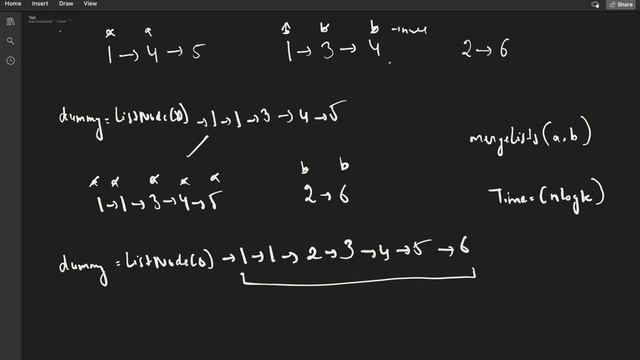 Home Insert Draw View
Share
Test
a a
1 → 4 → 5
b b → null
1 → 3 → 4
2 → 6
dummy = ListNode(0) → 1 → 1 → 3 → 4 → 5
mergeLists(a,b)
a a a a a
1 → 1 → 3 → 4 → 5
b b
2 → 6
Time = (nlogk)
dummy = ListNode(0) → 1 → 1 → 2 → 3 → 4 → 5 → 6